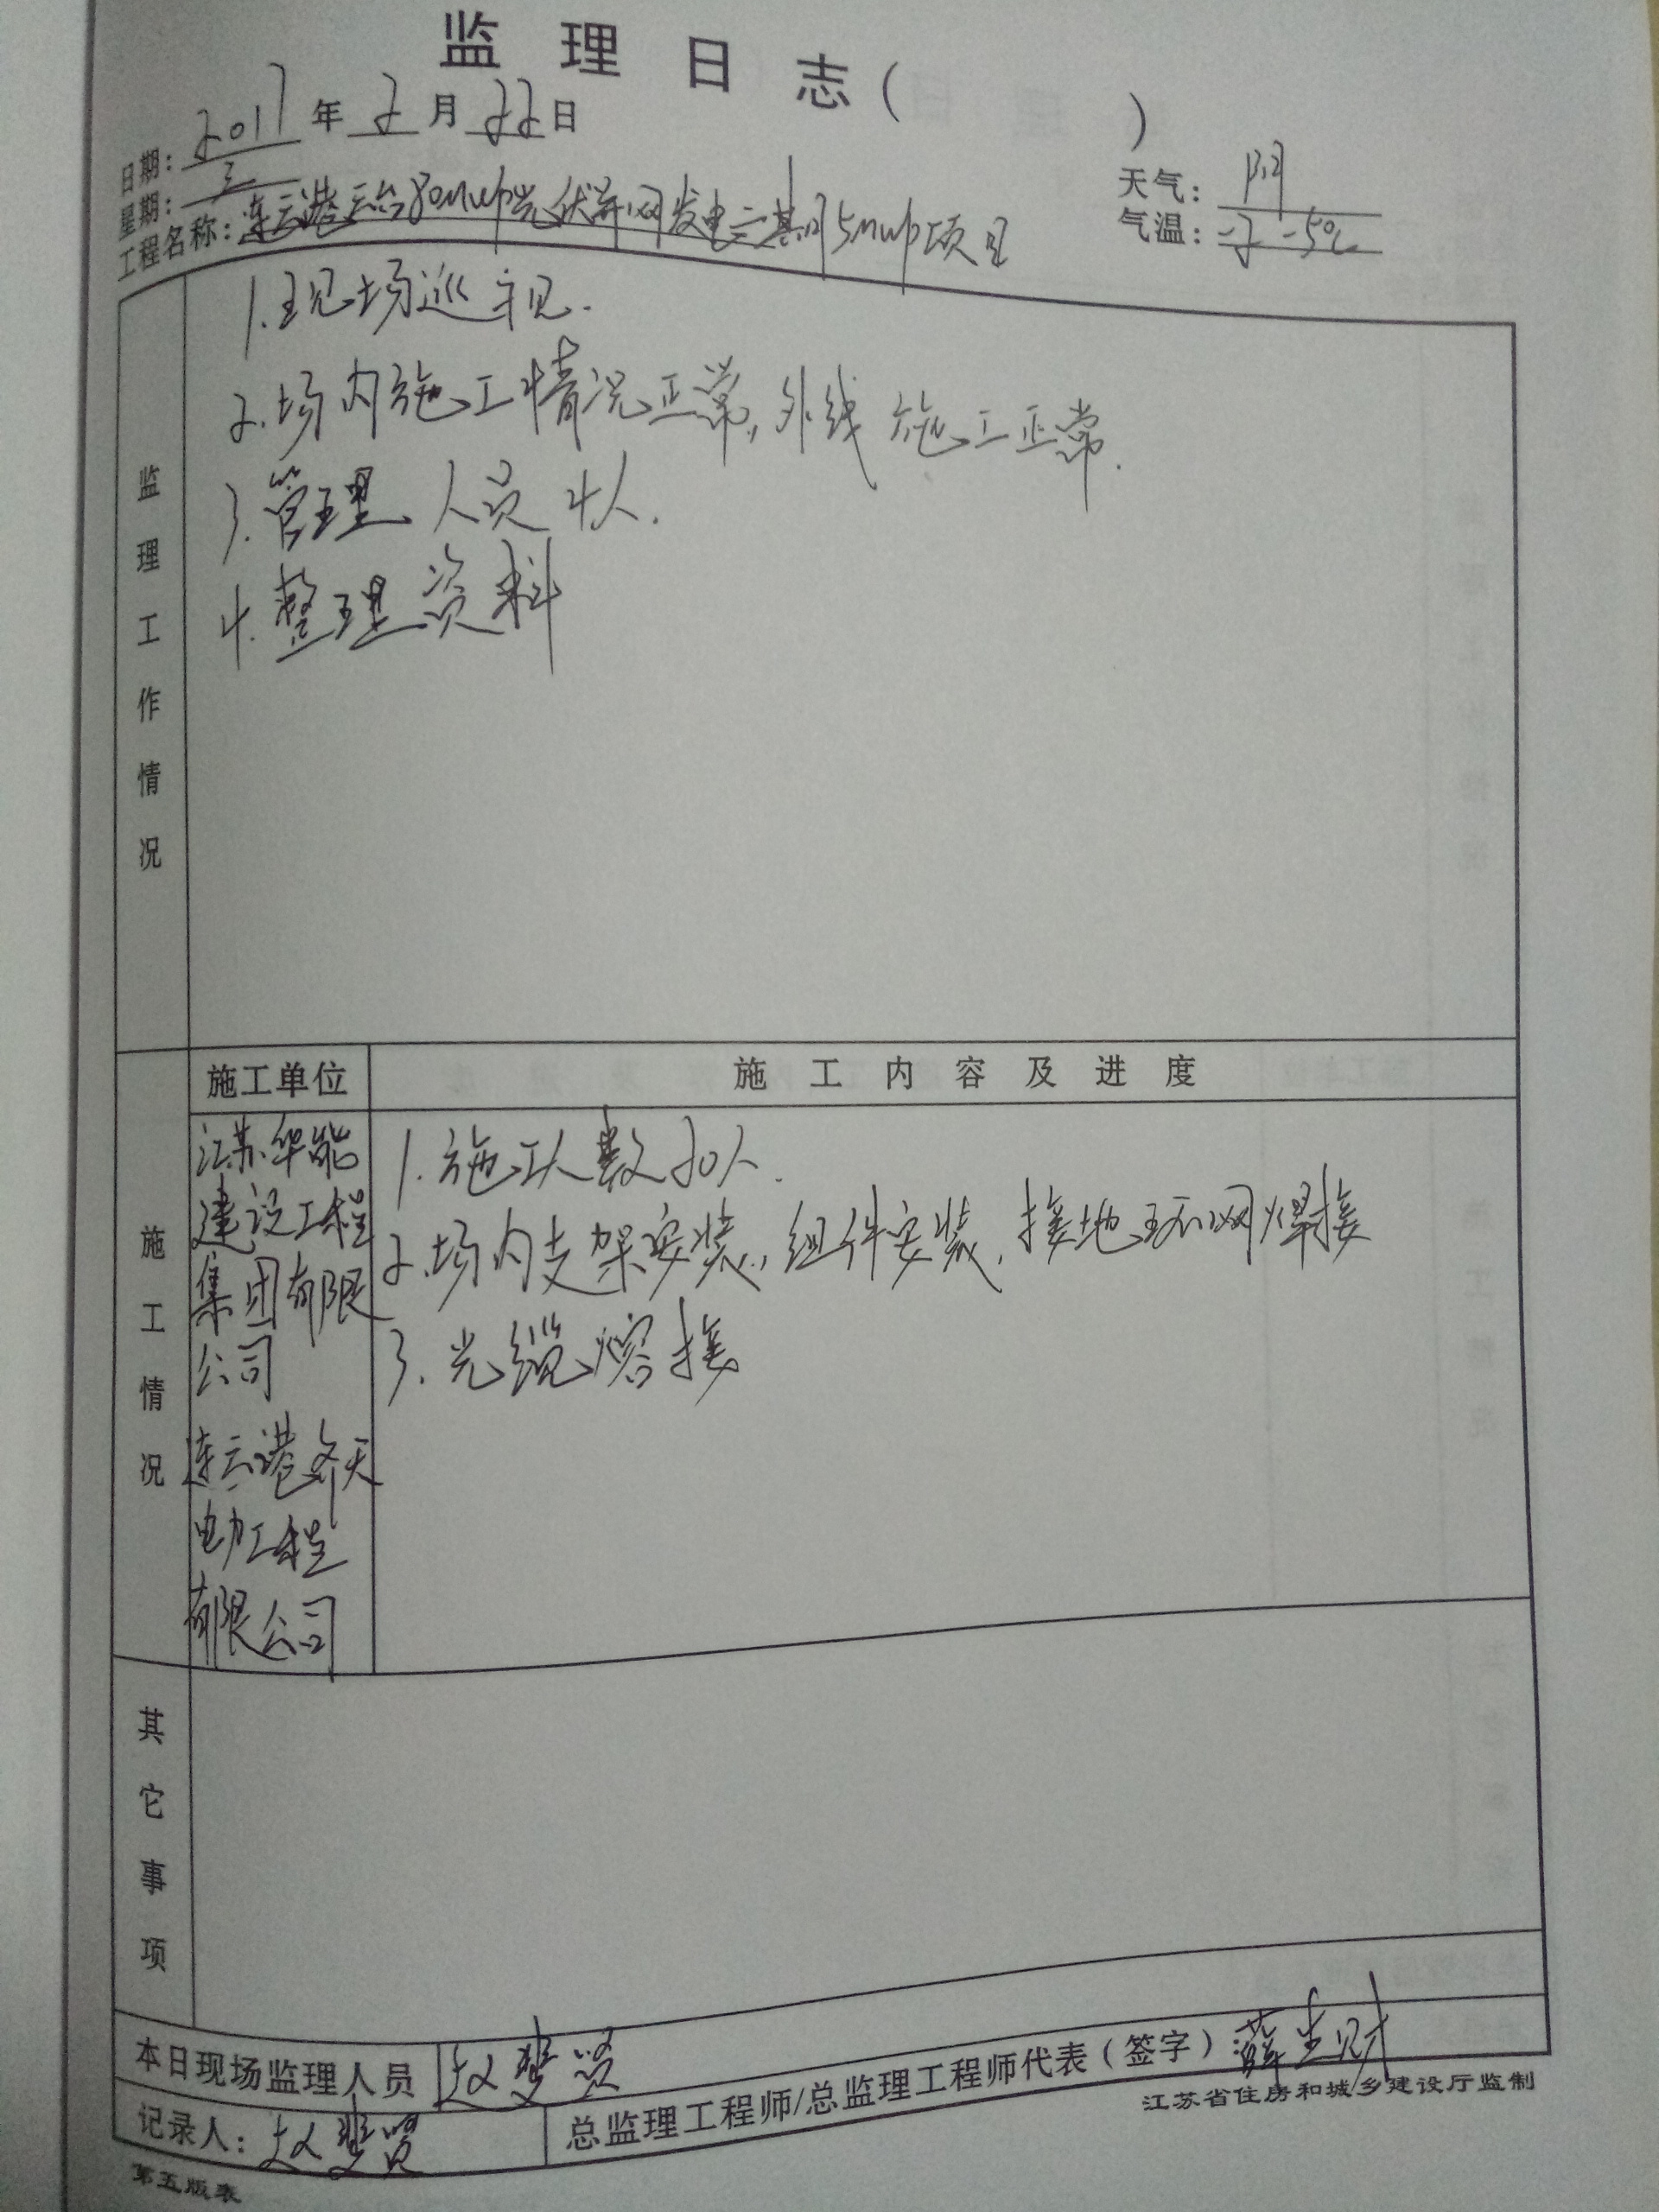 监理日志(        )
日期: 2017年2月22日
星期: 三
天气: 阴
气温: -2 -5℃
工程名称: 连云港云台80MWp光伏并网发电二期35MWp项目
监理工作情况
1.现场巡视.
2.场内施工情况正常,外线施工正常.
3.管理人员4人.
4.整理资料
施工情况
施工单位
施工内容及进度
江苏华能
建设工程
集团有限
公司
连云港
电力工程
有限公司
1.施工人数20人.
2.场内支架安装,组件安装,接地环网焊接
3.光缆熔接
其它事项
本日现场监理人员
记录人:
总监理工程师/总监理工程师代表(签字)
江苏省住房和城乡建设厅监制
第五版表